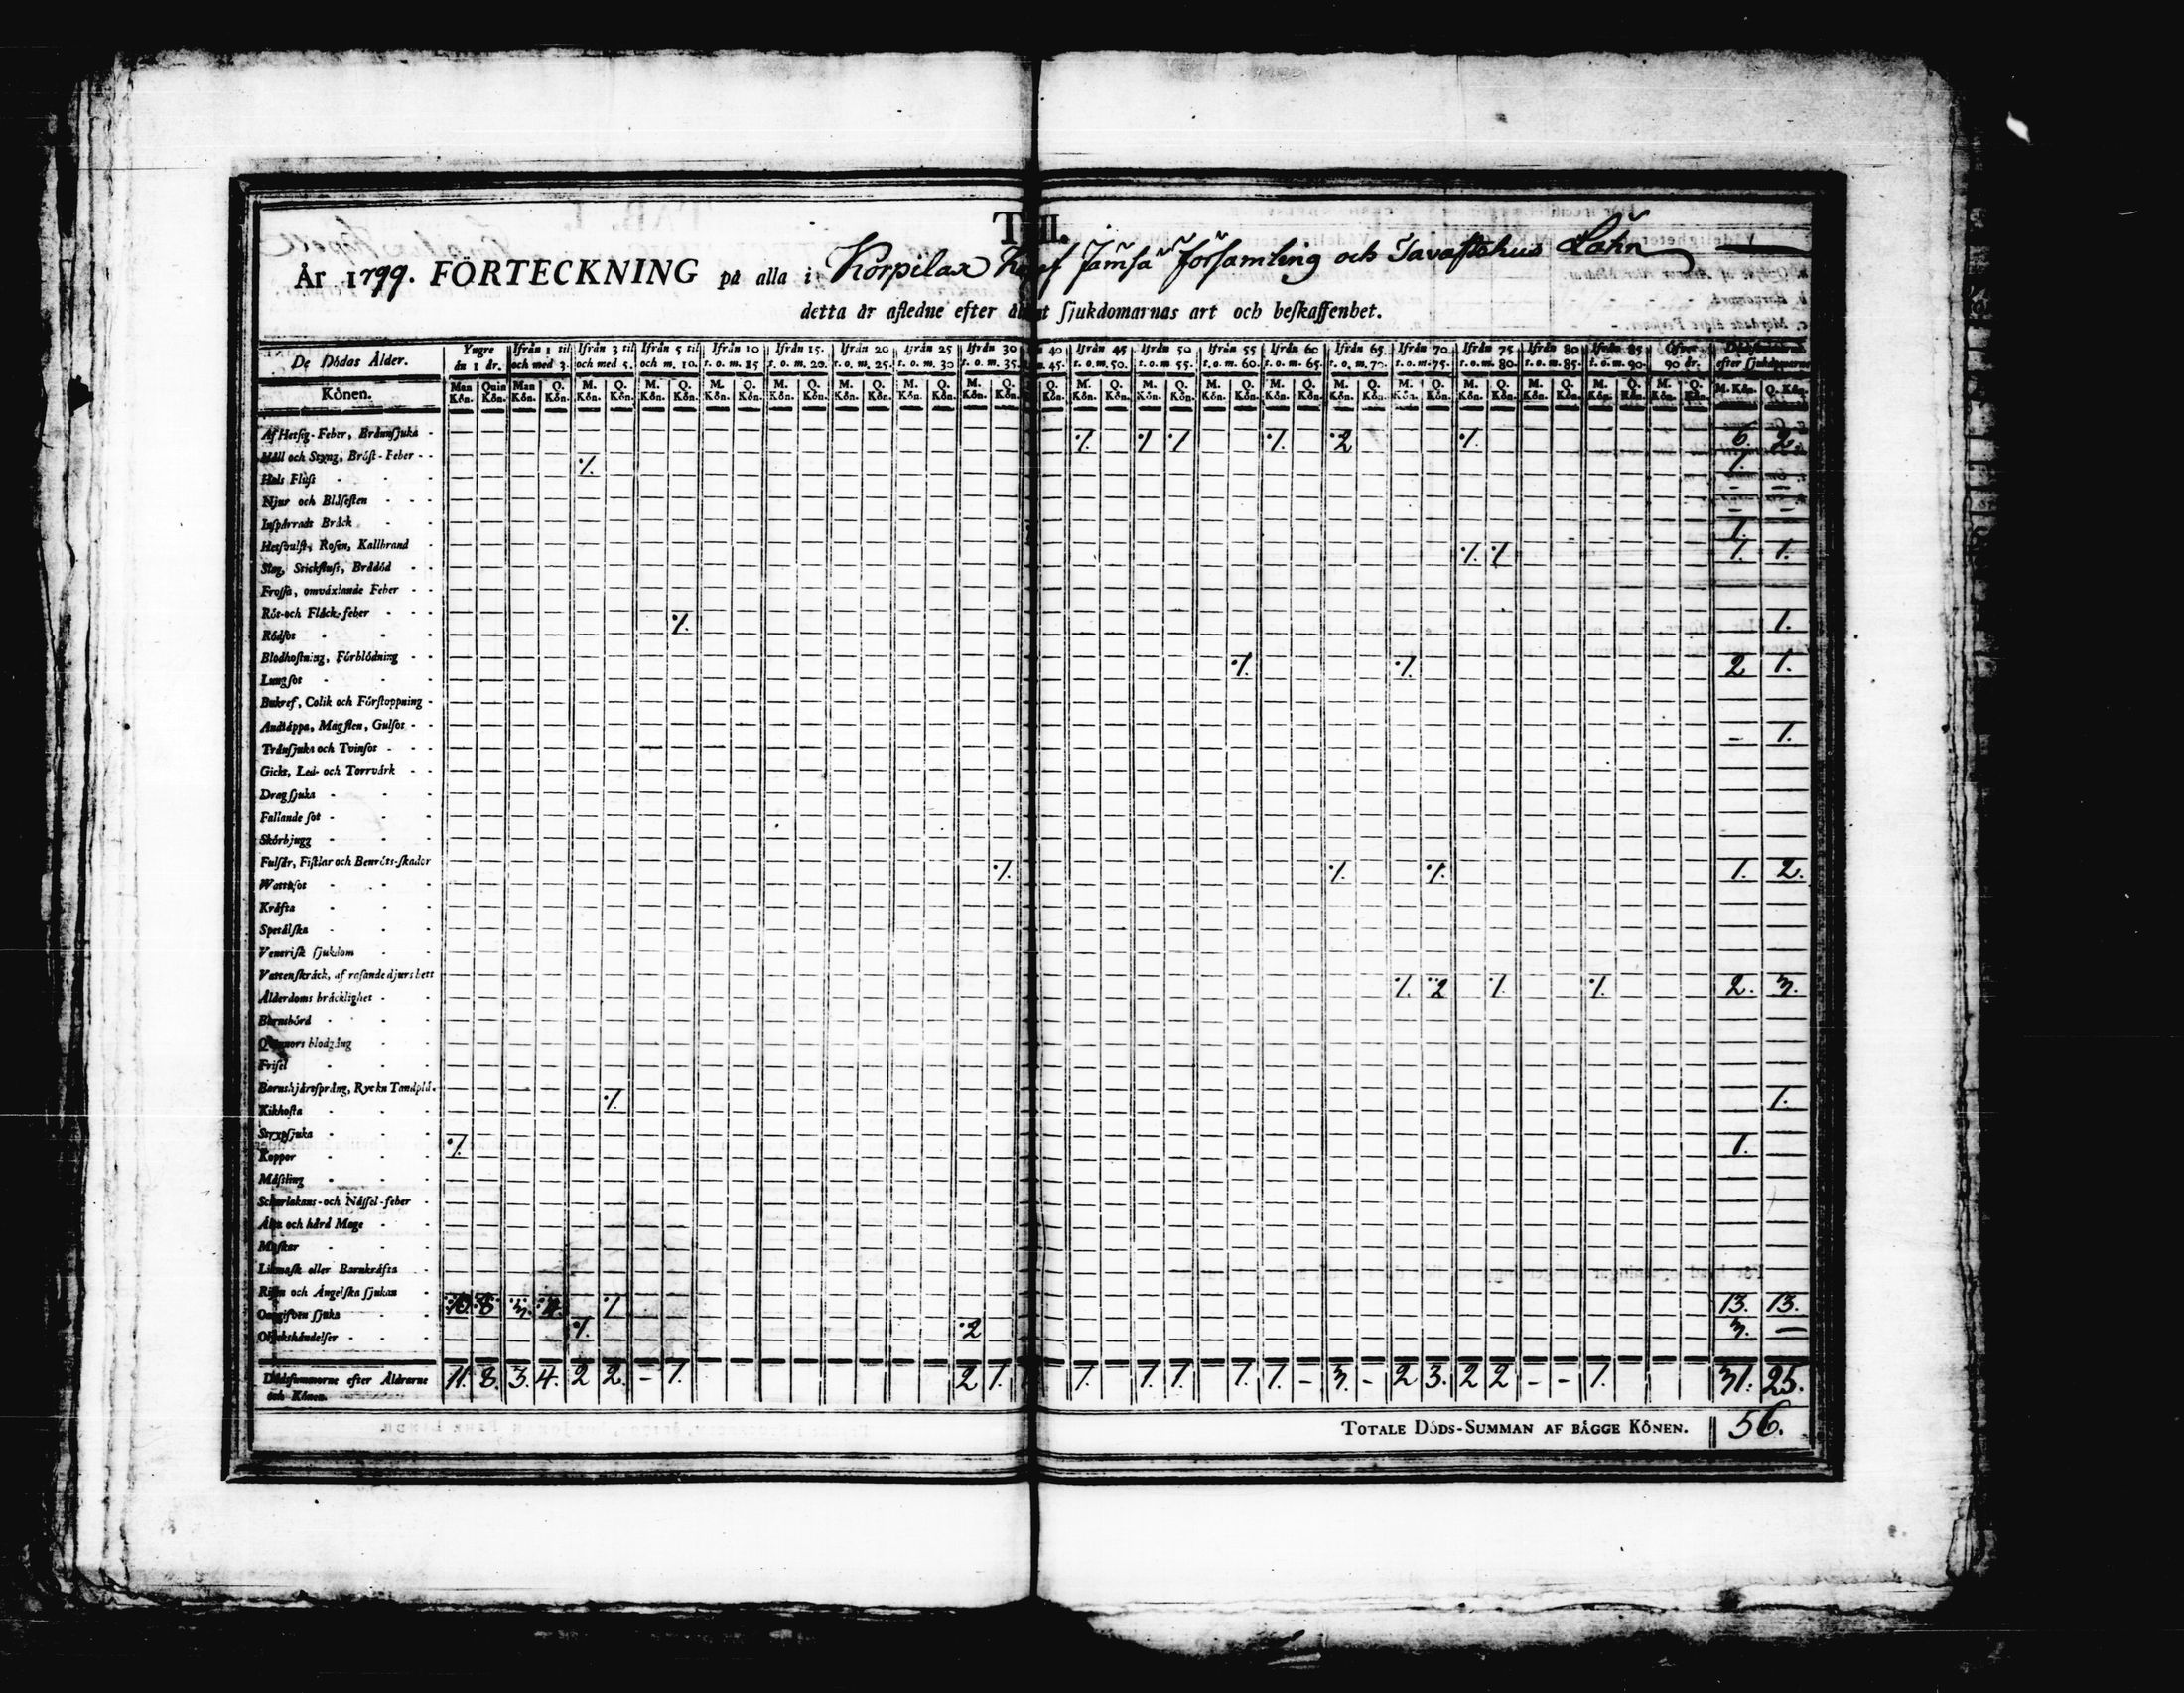 T II.
År 1799. FÖRTECKNING på alla i Korpilax Jämsä Församling och Tavastehus Lähn
detta år afledne efter sjukdomarnas art och beskaffenhet.
De Dödas Ålder. Yngre än 1 år. Ifrån 1 til och med 3. Ifrån 3 til och med 5. Ifrån 5 til och m. 10. Ifrån 10 t. o. m. 15 Ifrån 15. t. o. m. 20. Ifrån 20 t. o. m. 25. Ifrån 25 t. o. m. 30 Ifrån 30 t. o. m. 35. 40 45. Ifrån 45 t. o. m. 50. Ifrån 50 t. o. m. 55. Ifrån 55 t. o. m. 60. Ifrån 60 t. o. m. 65. Ifrån 65. t. o. m. 70. Ifrån 70. t. o. m. 75. Ifrån 75 t. o. m. 80. Ifrån 80 t. o. m. 85. Ifrån 85 t. o. m. 90. Öfver 90 år. efter sjukdomarne
Könen. Man Kön. Quin Kön. Man Kön. Q. Kön. M. Kön. Q. Kön. M. Kön. Q. Kön. M. Kön. Q. Kön. M. Kön. Q. Kön. M. Kön. Q. Kön. M. Kön. Q. Kön. M. Kön. Q. Kön. Q. Kön. M. Kön. Q. Kön. M. Kön. Q. Kön. M. Kön. Q. Kön. M. Kön. Q. Kön. M. Kön. Q. Kön. M. Kön. Q. Kön. M. Kön. Q. Kön. M. Kön. Q. Kön. M. Kön. Q. Kön. M. Kön. Q. Kön. M. Kön. Q. Kön.
Af Hetsig-Feber, Brännsjuka 1. 1 1 1. 2 1. 6. 2.
Håll och Styng, Bröst-Feber 1. 1.
Hals Fluss
Njur och Blåsesten
Inspärradt Bråck 1.
Hetsvulst, Rosen, Kallbrand 1. 1 1. 1.
Slag, Stickfluss, Brådöd
Frossa, omväxlande Feber
Röt-och Fläck-feber 1. 1.
Rödsot
Blodhostning, Förblödning 1. 1. 2 1.
Lungsot
Bukref, Colik och Förstoppning
Andtäppa, Magsten, Gulsot – 1.
Trånsjuka och Tvinsot
Gickt, Led- och Torrvärk
Dragsjuka
Fallande sot
Skörbjugg
Fulsår, Fistlar och Benröts-skador 1. 1. 1. 1. 2.
Wattusot
Kräfta
Spetälska
Venerisk sjukdom
Vattenskräck, af rasande djurs bett 1. 2 1. 1. 2. 3.
Ålderdoms bräcklighet
Barnsbörd
Qvinnors blodgång
Frisel
Barnshjärtsprång, Ryck 1. 1.
Kikhosta
Strypsjuka 1. 1.
Koppor
Mässling
Scharlakans-och Nässel-feber
Älta och hård Mage
Maskar
Likmask eller Barnkräfta
Risen och Ängelska sjukan 10. 8 3. 4. 1 13. 13.
Oangifven sjuka 1. 2 3. –
Olyckshändelser
Dödssummorne efter Åldrarne och Könen. 11. 8. 3. 4. 2 2. – 1. 2 1. 1. 1. 1. 1. 1. – 3. – 2 3. 2 2 – – 1. 31. 25.
TOTALE DÖDS-SUMMAN AF BÄGGE KÖNEN. 56.